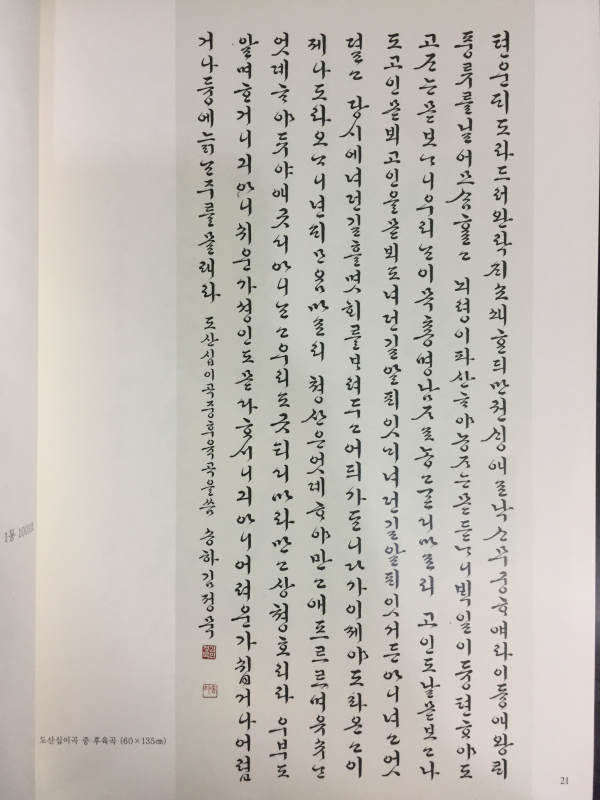 텬운ᄃᆡ도라드러완락ᄌᆡ소쇄ᄒᆞᆫᄃᆡ만권ᄉᆡᆼ애로낙ᄉᆞ무궁ᄒᆞ얘라이듕애왕ᄅᆡ
풍류를닐어므슴ᄒᆞᆯ고 뇌뎡이파산ᄒᆞ야농쟈ᄂᆞᆫ몯듣ᄂᆞ니ᄇᆡᆨ일이듕텬ᄒᆞ야도
고쟈ᄂᆞᆫ몯보ᄂᆞ니우리ᄂᆞᆫ이목총명남ᄌᆞ로농고ᄀᆞᆮ디마로리 고인도날몯보고나
도고인몯뵈고인을몯뵈도녀던길알ᄑᆡ잇ᄂᆡ녀던길알ᄑᆡ잇거든아니녀고엇
뎔고 당시에녀던길흘몃ᄒᆡ를ᄇᆞ려두고어듸가ᄃᆞᆫ니다가이제야도라온고이
제나도라오ᄂᆞ니년ᄃᆡᄆᆞᄋᆞᆷ마로리 쳥산은엇뎨ᄒᆞ야만고애프르르며유슈ᄂᆞᆫ
엇뎨ᄒᆞ야듀야애긋디아니ᄂᆞᆫ고우리도긋티디마라만고샹쳥호리라 우부도
알며ᄒᆞ거니긔아니쉬운가셩인도몯다ᄒᆞ시니긔아니어려운가쉽거나어렵
거나듕에늙ᄂᆞᆫ주를몰래라 도산십이곡중후육곡을씀 송하김정묵
도산십이곡 중 후육곡 (60×135㎝)
21